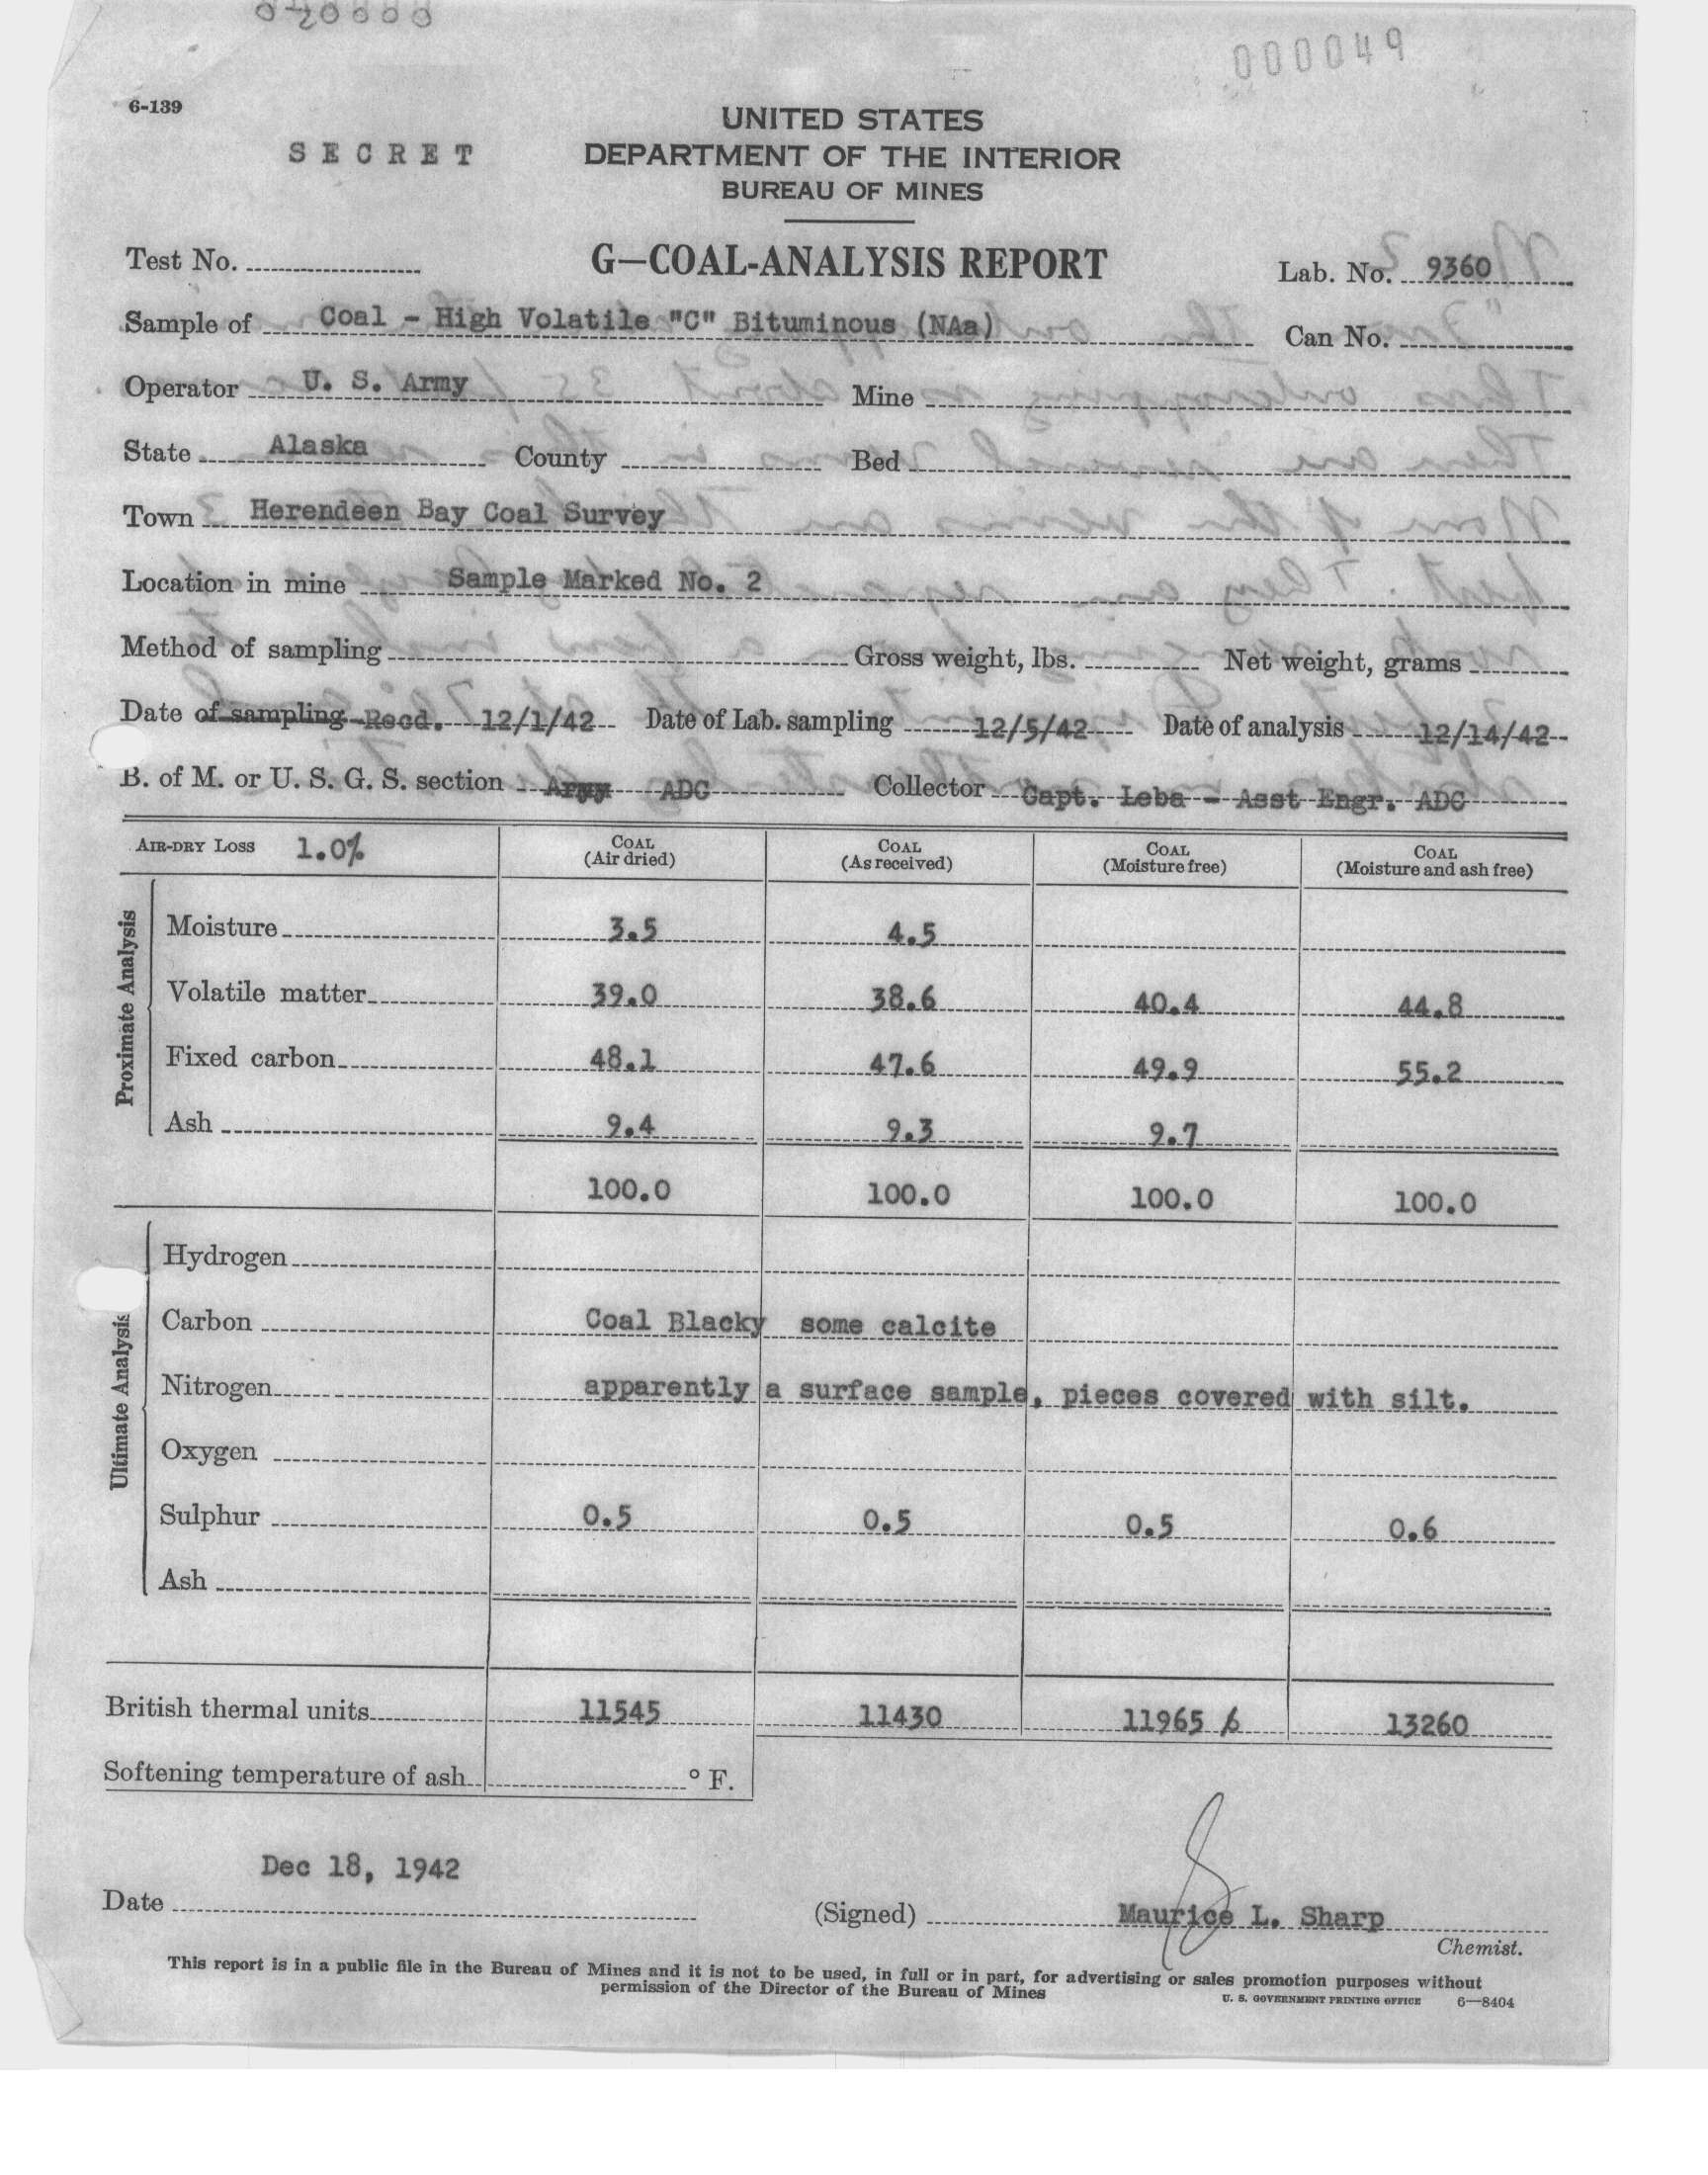 000049
6-139
UNITED STATES
SECRET
DEPARTMENT OF THE INTERIOR
BUREAU OF MINES
G—COAL-ANALYSIS REPORT
Test No.
Lab. No. 9360
Sample of Coal - High Volatile "C" Bituminous (NAa)
Can No.
Operator U. S. Army Mine
State Alaska County Bed
Town Herendeen Bay Coal Survey
Location in mine Sample Marked No. 2
Method of sampling Gross weight, lbs. Net weight, grams
Date of sampling Recd. 12/1/42 Date of Lab. sampling 12/5/42 Date of analysis 12/14/42
B. of M. or U. S. G. S. section Army ADC Collector Capt. Leba - Asst Engr. ADC
AIR-DRY LOSS 1.0% COAL (Air dried) COAL (As received) COAL (Moisture free) COAL (Moisture and ash free)
Proximate Analysis
Moisture 3.5 4.5
Volatile matter 39.0 38.6 40.4 44.8
Fixed carbon 48.1 47.6 49.9 55.2
Ash 9.4 9.3 9.7
100.0 100.0 100.0 100.0
Ultimate Analysis
Hydrogen
Carbon Coal Blacky some calcite
Nitrogen apparently a surface sample, pieces covered with silt.
Oxygen
Sulphur 0.5 0.5 0.5 0.6
Ash
British thermal units 11545 11430 11965 6 13260
Softening temperature of ash ° F.
Dec 18, 1942
Date
(Signed) Maurice L. Sharp
Chemist.
This report is in a public file in the Bureau of Mines and it is not to be used, in full or in part, for advertising or sales promotion purposes without
permission of the Director of the Bureau of Mines
U. S. GOVERNMENT PRINTING OFFICE 6—8404